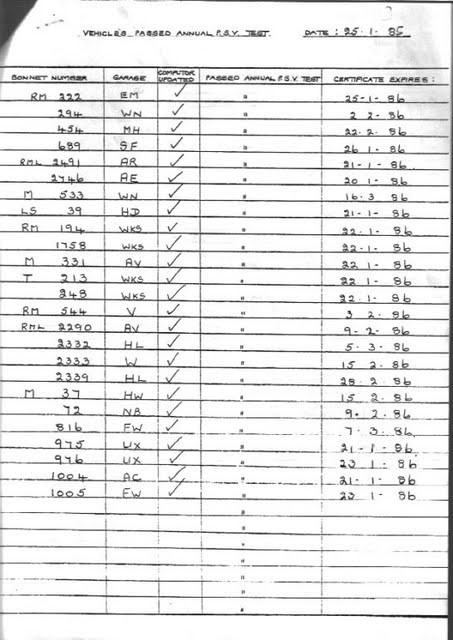 VEHICLES PASSED ANNUAL P.S.V. TEST. DATE: 25.1.85
BONNET NUMBER GARAGE COMPUTOR UPDATED PASSED ANNUAL P.S.V. TEST CERTIFICATE EXPIRES:
RM 222 EM ✓ " 25-1-86
294 WN ✓ " 2 2-86
454 MH ✓ " 22.2.86
689 SF ✓ " 26 1-86
RML 2491 AR ✓ " 21-1-86
2746 AE ✓ " 20 1-86
M 533 WN ✓ " 16.3 86
LS 39 HD ✓ " 21-1-86
RM 194 WKS ✓ " 22.1-86
1758 WKS ✓ " 22.1-86
M 331 AV ✓ " 22 1-86
T 213 WKS ✓ " 22 1-86
248 WKS ✓ " 22.1-86
RM 544 V ✓ " 3 2.86
RML 2290 AV ✓ " 9-2-86
2332 HL ✓ " 5.3.86
2333 W ✓ " 15 2.86
2339 HL ✓ " 28.2.86
M 37 HW ✓ " 15 2.86
72 NB ✓ " 9.2.86
816 FW ✓ " 7.3.86
975 UX ✓ " 21-1-86
976 UX ✓ " 23 1-86
1004 AC ✓ " 21-1-86
1005 FW ✓ " 23 1-86
"
"
"
"
"
"
"